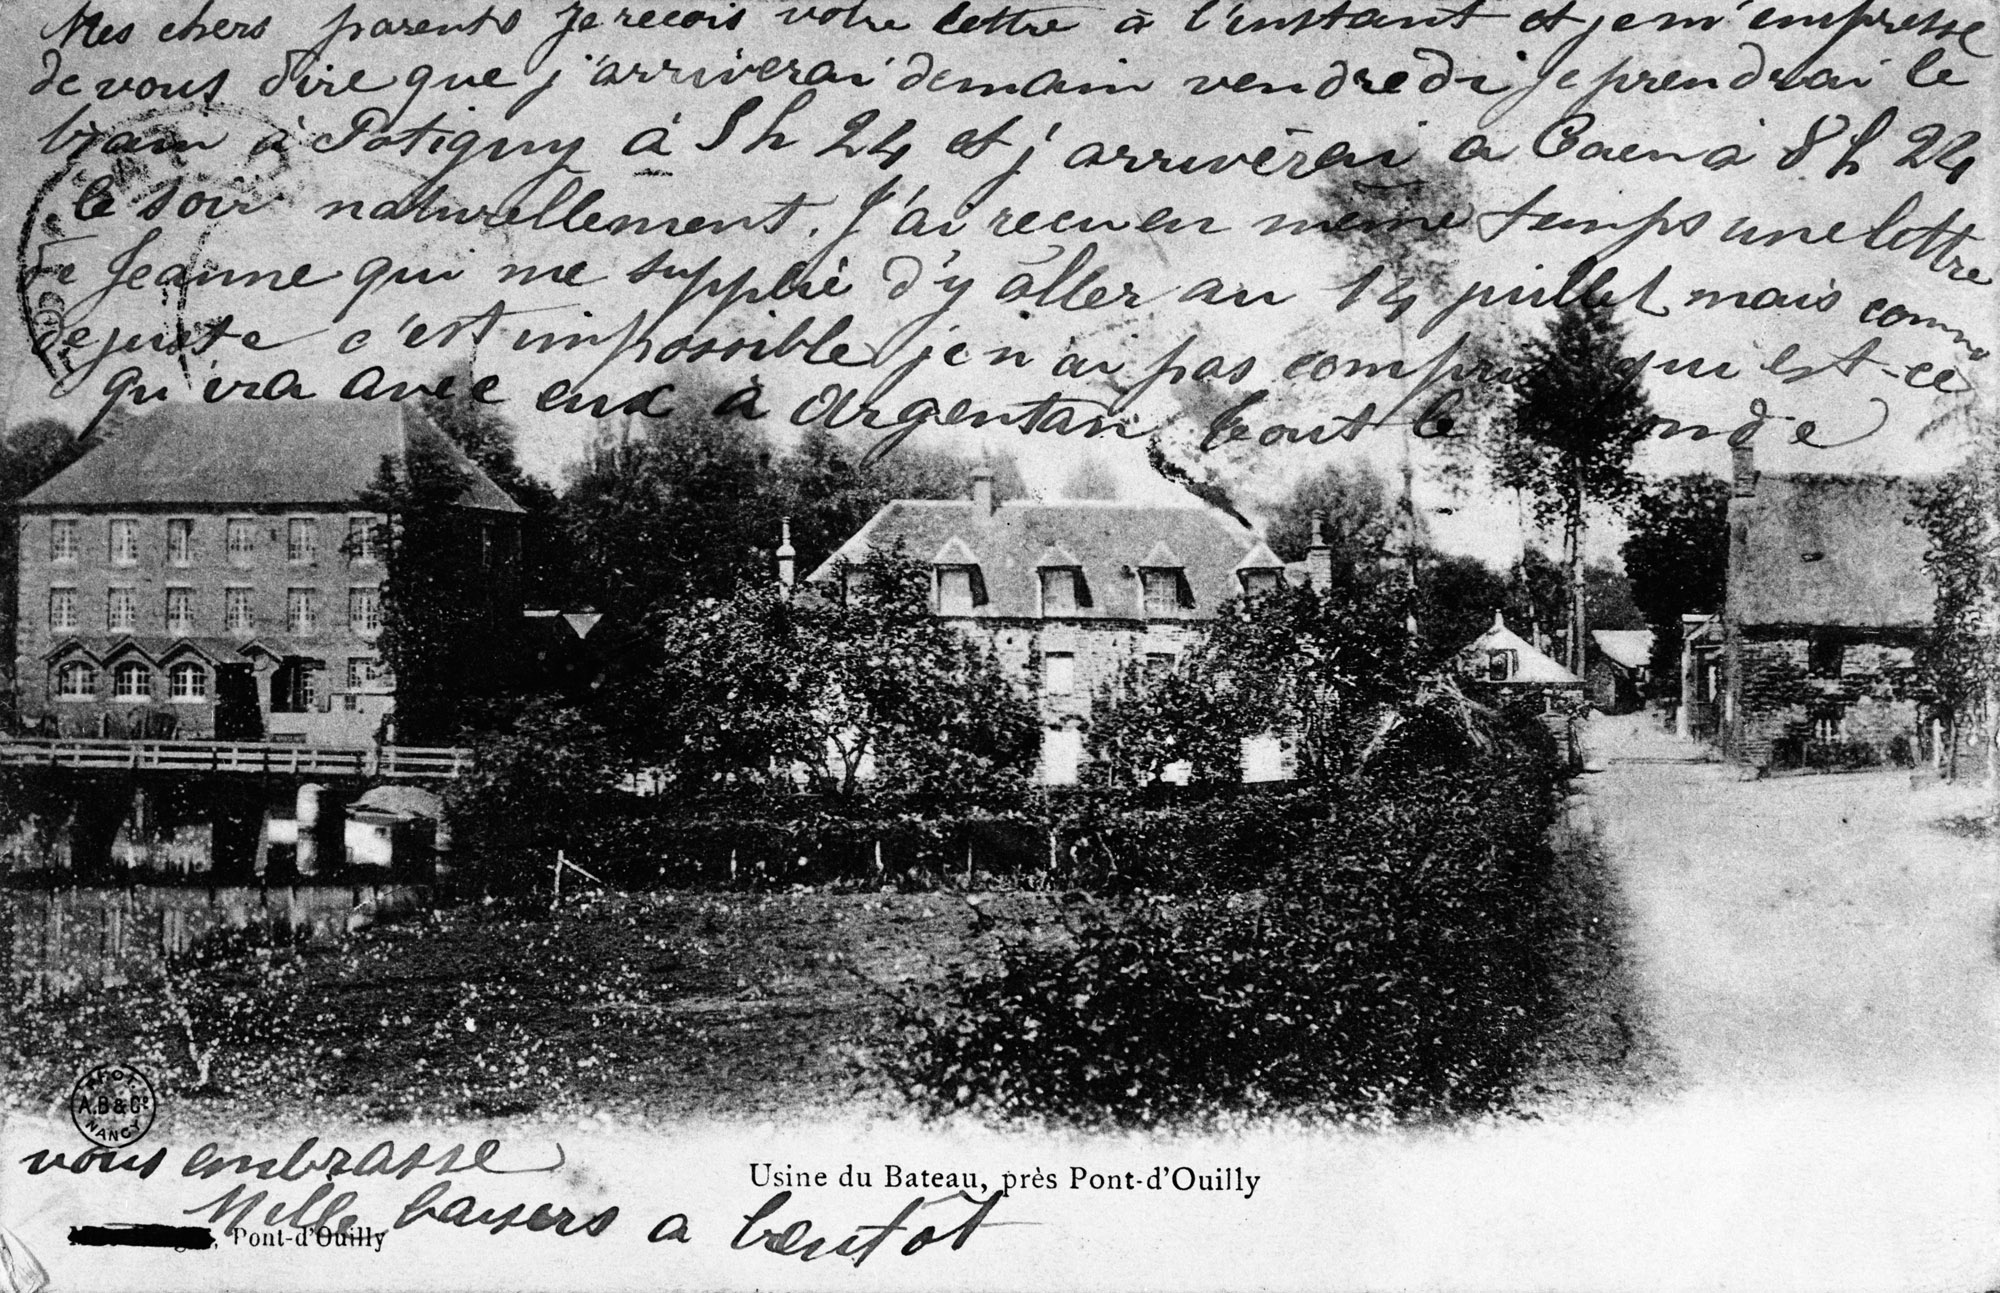 Mes chers parents je recois votre lettre à l'instant et je m'empresse
de vous dire que j'arriverai demain vendredi je prendrai le
train à Potigny à 5 h 24 et j'arriverai a Caen à 8 h 24
le soir naturellement. J'ai recu en même temps une lettre
de Jeanne qui me supplie d'y aller au 14 juillet mais comme
de juste c'est impossible je n'ai pas compris qui est-ce
qu'ira avec eux à Argentan tout le monde
PHOT.
A.B & Cie
NANCY
vous embrasse
Usine du Bateau, près Pont-d'Ouilly
Mille baisers a bientôt
, Pont-d'Ouilly